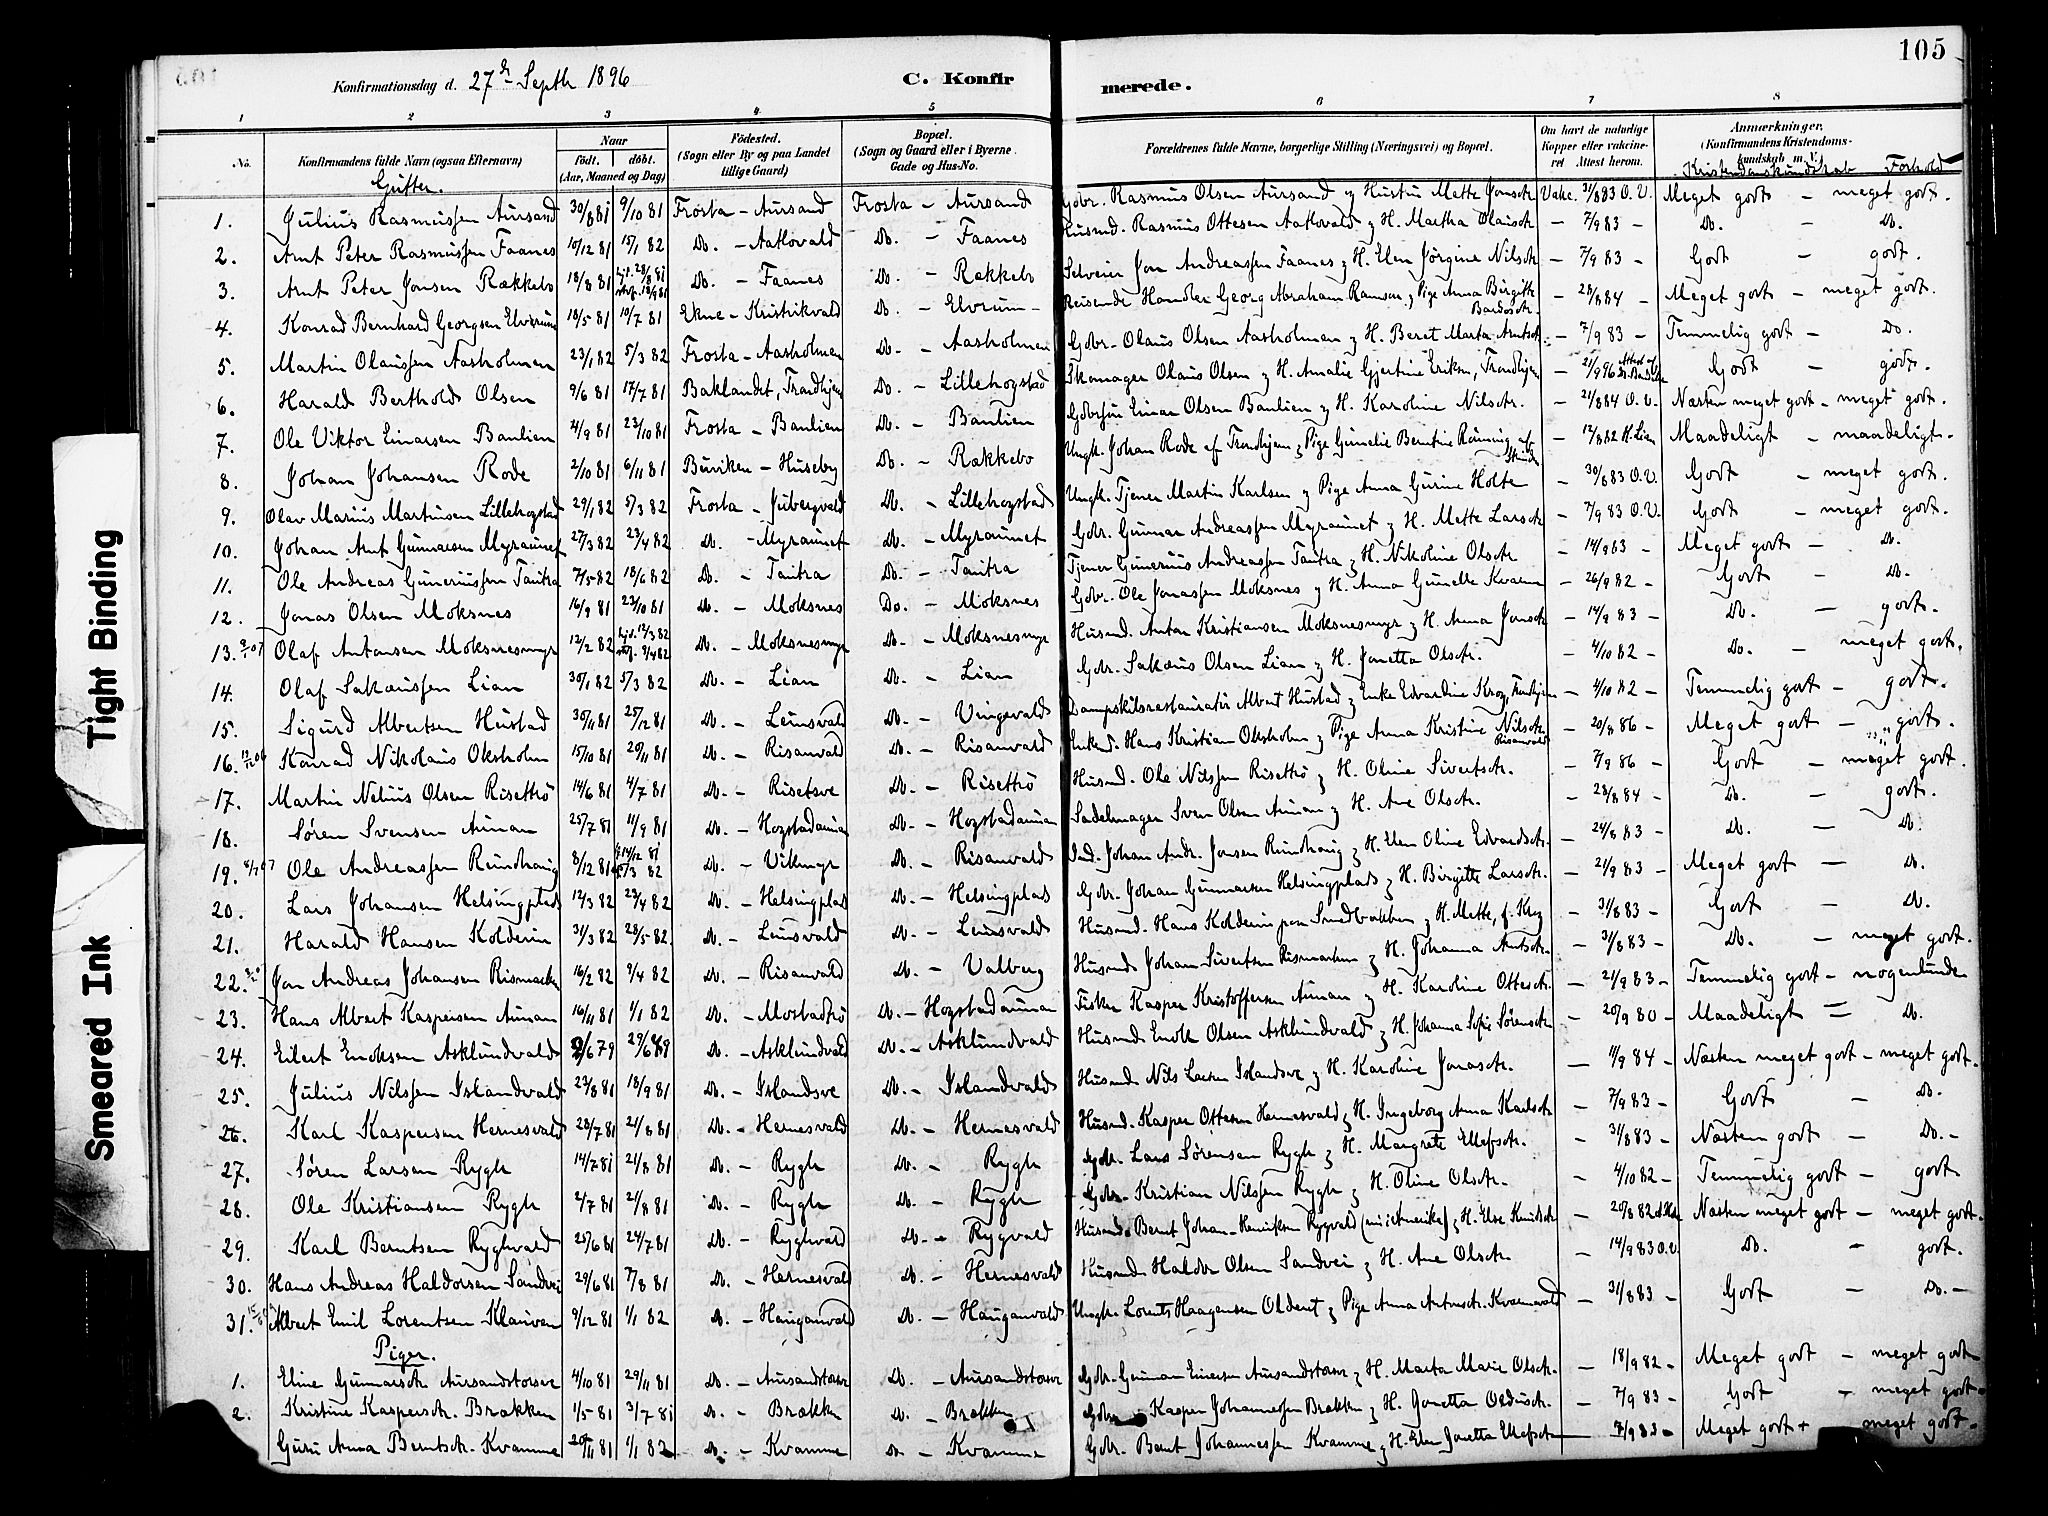 105
Konfirmationsdag d. 27de Septbr 1896 C. Konfirmerede.
1 2 3 4 5 6 7 8
No. Konfirmandens fulde Navn (ogsaa Efternavn) Naar födt. döbt. (Aar, Maaned og Dag) Födested. (Sogn eller By og paa Landet tillige Gaard) Bopæl. (Sogn og Gaard eller i Byerne Gade og Hus-No. Forældrenes fulde Navne, borgerlige Stilling (Næringsvei) og Bopæl. Om havt de naturlige Kopper eller vaccineret Attest herom. Anmærkninger. (Konfirmandens Kristendomskundskab m. V.
Kristendomskundskab Forhold
Gutter.
1. Julius Rasmussen Aursand 30/8 81 9/10 81 Frosta - Aursand Frosta - Aursand Gdbr. Rasmus Olsen Aursand og Hustru Mette Jonsdtr Vakc. 31/8 83 O.V. Meget godt - meget godt.
2. Arnt Peter Rasmussen Faanes 10/12 81 15/1 82 Do. - Aatlovald Do. - Faanes Husmd. Rasmus Ottesen Aatlovald og H. Martha Olausdtr - 7/9 83 - Do. - Do.
3. Arnt Peter Jonsen Rækkebo 18/8 81 Hjd. 28/8 81 18/9 81 Do. - Faanes Do. - Rækkebo Selveier Jon Andreassen Faanes og H. Elen Jörgine Nilsdtr - 7/9 83 - Godt - godt.
4. Konrad Bernhard Georgsen Elvrum 18/5 81 10/7 81 Ekne - Kristrikvald Do. - Elvrum - Reisende Handler Georg Abraham Ramsøe og Pige Anna Birgitte Bardosdtr. - 28/8 84 - Meget godt - meget godt.
5. Martin Olaussen Aasholmen 23/1 82 5/3 82 Frosta - Aasholmen Do. - Aasholmen Gdbr. Olaus Olsen Aasholman og H. Beret Marta Arntsdtr. - 7/9 83 - Temmelig godt - Do.
6. Harald Berthold Olsen 9/6 81 17/7 81 Baklandet, Trondhjem Do. - Lillehogstad Skomager Olaus Olsen og H. Amalie Gjertine Eriksen, Trondhjem - 21/9 96 Attest af Godt - godt.
7. Ole Viktor Einarsen Baulien 4/9 81 23/10 81 Frosta - Baulien Do. - Baulien Gdbrsøn Einar Olsen Baulien og H. Karoline Nilsdtr. - 21/8 84 O.V. Næsten meget godt - meget godt.
8. Johan Johansen Rode 2/10 81 6/11 81 Buviken - Huseby Do. - Rækkebo Ungk. Johan Rode af Trondhjem og Pige Gunelie Berntine Rønning af Strinden - 12/8 82 K. Lien Maadeligt - maadeligt.
9. Olav Marius Martinsen Lillehogstad 29/1 82 5/3 82 Frosta - Jubergvald Do. - Lillehogstad Ungk. Tjener Martin Karlsen og Pige Anna Gurine Holte - 30/8 83 O.V. Godt - meget godt.
10. Johan Arnt Gunnarsen Myraunet 27/3 82 23/4 82 Do. - Myraunet Do. - Myraunet Gdbr. Gunnar Andreassen Myraunet og H. Mette Larsdtr - 7/9 83 O.V. Godt - meget godt.
11. Ole Andreas Guneriussen Tautra 7/5 82 18/6 82 Do. - Tautra Do. - Tautra Tjener Gunerius Andreassen Tautra og H. Nikoline Olsdtr - 14/9 83 - Meget godt - Do.
12. Jonas Olsen Moksnes 16/9 81 23/10 81 Do. - Moksnes Do. - Moksnes Gdbr. Ole Jonassen Moksnes og H. Anna Gunelle Kvamme - 26/9 82 - Godt - Do.
13. 9/1 07 Olaf Antonsen Moksnesmyr 12/2 82 Hjd. 12/3 82 9/4 82 Do. - Moksnesmyr Do. - Moksnesmyr Husmd. Anton Kristiansen Moksnesmyr og H. Anna Jonsdtr - 14/9 83 - Do. - godt.
14. Olaf Sakæussen Lian 30/1 82 5/3 82 Do. - Lian Do. - Lian Gdbr. Sakæus Olsen Lian og H. Jonetta Olsdtr. - 4/10 82 - Do. - meget godt.
15. Sigurd Albertsen Hustad 30/11 81 25/12 81 Do. - Leinsvald Do. - Vingevald Dampskibsrestauratør Albert Hustad og Enke Edvardine Krog, Trondhjem - 4/10 82 - Temmelig godt - godt.
16. 12/12 06 Konrad Nikolaus Oksholm 15/10 81 20/11 81 Do. - Risanvald Do. - Risanvald Enkemd. Hans Kristian Oksholm og Pige Anna Kristine Nilsdtr. Risanvald - 20/8 86 - Meget godt - godt.
17. Martin Nelius Olsen Risettrø 14/6 81 4/7 81 Do. - Risetsve Do. - Risettrø Husmd. Ole Nilssen Risettrø og H. Oline Sivertsdtr. - 7/9 86 - Godt - meget godt.
18. Søren Svensen Aunan 25/7 81 11/9 81 Do. - Hogstadaunan Do. - Hogstadaunan Sadelmager Sven Olsen Aunan og H. Ane Olsdtr. - 28/8 84 - Do. - godt.
19. 8/1 07 Ole Andreassen Reindhaug 8/12 81 14/12 81 5/3 82 Do. - Vikmyr Do. - Risanvald Ind. Johan Andr. Jonsen Reindhaug og H. Elen Oline Edvardsdtr. - 24/8 83 - Do. - Do.
20. Lars Johansen Helsingplads 12/3 82 23/4 82 Do. - Helsingplads Do. - Helsingplads Gdbr. Johan Gunnarsen Helsingplads og H. Birgitte Larsdtr. - 21/9 83 - Meget godt - Do.
21. Harald Hansen Kolderin 31/3 82 28/5 82. Do. - Leinsvald Do. - Leinsvald Husmd. Hans Kolderin paa Smedbakken og H. Mette, f. Krog - 31/8 83 - Godt - Do.
22. Jon Andreas Johansen Rismarken 16/2 82 9/4 82 Do. - Risanvald Do. - Valberg Husmd Johan Sivertsen Rismarken og H. Johanna Arntsdtr. - 31/8 83 - Do. - meget godt.
23. Hans Albert Kaspersen Aunan 16/11 81 1/1 82 Do. - Mostadtrø Do. - Hogstadaunan Fisker Kasper Kristoffersen Aunan og H. Karoline Ottesdtr. - 21/9 83 - Temmelig godt - nogenlunde
24. Eilert Enoksen Asklundvald 2/6 79 29/6 79 Do. - Asklundvald Do. - Asklundvald Husmd Enok Olsen Asklundvald og H. Johanna Sofie Sørensdtr - 20/9 80 - Maadeligt = Do.
25. Julius Nilssen Islandvald 23/8 81 18/9 81 Do. - Islandsve Do. - Islandvald Husmd Nils Larsen Islandsve og H. Karoline Jonasdtr. - 11/9 84 - Næsten meget godt - meget godt.
26. Karl Kaspersen Hernesvald 28/7 81 21/8 81 Do. - Hernesvald Do. - Hernesvald Husmd. Kasper Ottesen Hernesvald og H. Ingeborg Anna Karlsdtr - 7/9 83 - Godt - Do.
27. Søren Larsen Rygh 14/7 81 21/8 81 Do. - Rygh Do. - Rygh Gdbr. Lars Sørensen Rygh og H. Margrete Ellefsdtr. - 31/8 83 - Næsten godt - Do. -
28. Ole Kristiansen Rygh 2/7 81 21/8 81 Do. - Rygh Do. - Rygh Gdbr. Kristian Nilssen Rygh og H. Oline Olsdtr. - 4/10 82 - Temmelig godt - godt
29. Karl Berntsen Ryghvald 25/6 81 24/7 81 Do. - Ryghvald Do. - Rygvald Husmd. Bernt Johan Henriksen Rygvald (nu i Amerika) og H. Else Knutsdtr - 20/8 82 Næsten meget godt - meget godt.
30. Hans Andreas Haldorsen Sandvei 29/6 81 7/8 81 Do. - Hernesvald Do. - Hernesvald Husmd Haldor Olsen Sandvei og H. Ane Olsdtr. - 14/9 83 O.V. Do. - godt.
31. Albert Emil Lorentsen Klauven 9/12 81 1/1 82 Do. - Hauganvald Do. - Hauganvald Ungk. Lorents Haagensen Olderet og Pige Anna Antonsdtr. Kvamvald - 31/8 83 - Godt - Do. -
Piger.
1. Eline Gunnarsdtr Aursandstorsve 4/10 81 29/11 81 Do. - Aursandstorsve Do. - Aursandstorsve Gdbr. Gunnar Einersen Aursandstorsve og H. Marta Marie Olsdtr. - 18/9 82 - Meget godt - meget godt
2. Kristine Kaspersdtr. Brækken 1/5 81 3/7 81 Do. - Brækken Do. - Brækken Gdbr Kasper Johannessen Brækken og H. Jonetta Ordinsdtr. - 7/9 83 - Godt - meget godt
Guru Anna Berntsdtr. Kvamme 20/11 81 1/1 82 Do. - Kvamme Do - Kvamme Gdbr. Bernt Johannessen Kvamme og H. Elen Jonetta Ellefsdtr - 7/9 83 - Meget godt + meget godt.
Tight Binding
Smeared Ink